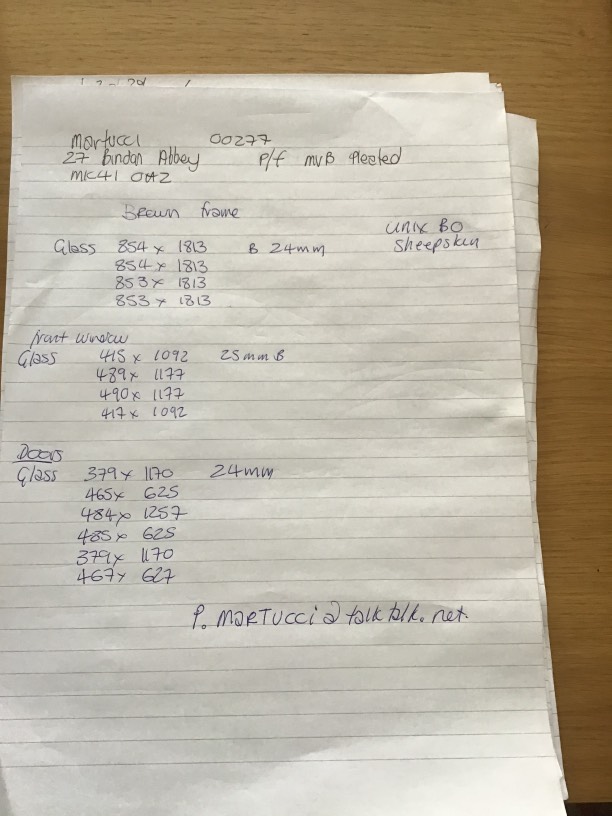 Martucci 00277
27 Bindon Abbey P/f MVB Pleated
MK41 0AZ
Brown frame
Unix BO
Sheepskin
Glass 854 x 1813 B 24mm
854 x 1813
853 x 1813
853 x 1813
front window
Glass 415 x 1092 25mm B
489 x 1177
490 x 1177
417 x 1092
Doors
Glass 379 x 1170 24mm
465 x 625
484 x 1257
485 x 625
379 x 1170
467 x 627
P. MARTUCCI @ talktalk. net.